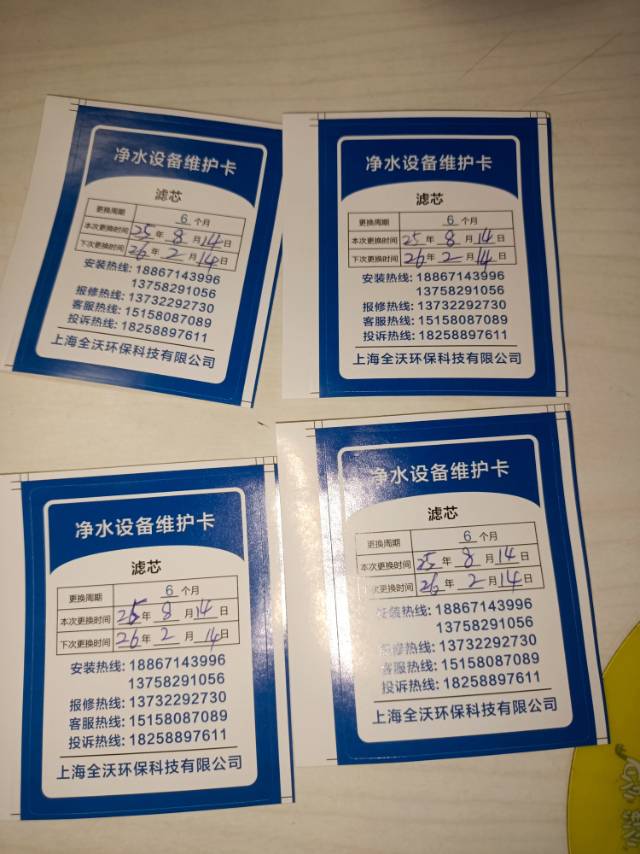 净水设备维护卡
滤芯
更换周期 6 个月
本次更换时间 25 年 8 月 14 日
下次更换时间 26 年 2 月 14 日
安装热线: 18867143996
13758291056
报修热线: 13732292730
客服热线: 15158087089
投诉热线: 18258897611
上海全沃环保科技有限公司
净水设备维护卡
滤芯
更换周期 6 个月
本次更换时间 25 年 8 月 14 日
下次更换时间 26 年 2 月 14 日
安装热线: 18867143996
13758291056
报修热线: 13732292730
客服热线: 15158087089
投诉热线: 18258897611
上海全沃环保科技有限公司
净水设备维护卡
滤芯
更换周期 6 个月
本次更换时间 25 年 8 月 14 日
下次更换时间 26 年 2 月 14 日
安装热线: 18867143996
13758291056
报修热线: 13732292730
客服热线: 15158087089
投诉热线: 18258897611
上海全沃环保科技有限公司
净水设备维护卡
滤芯
更换周期 6 个月
本次更换时间 25 年 8 月 14 日
下次更换时间 26 年 2 月 14 日
安装热线: 18867143996
13758291056
报修热线: 13732292730
客服热线: 15158087089
投诉热线: 18258897611
上海全沃环保科技有限公司